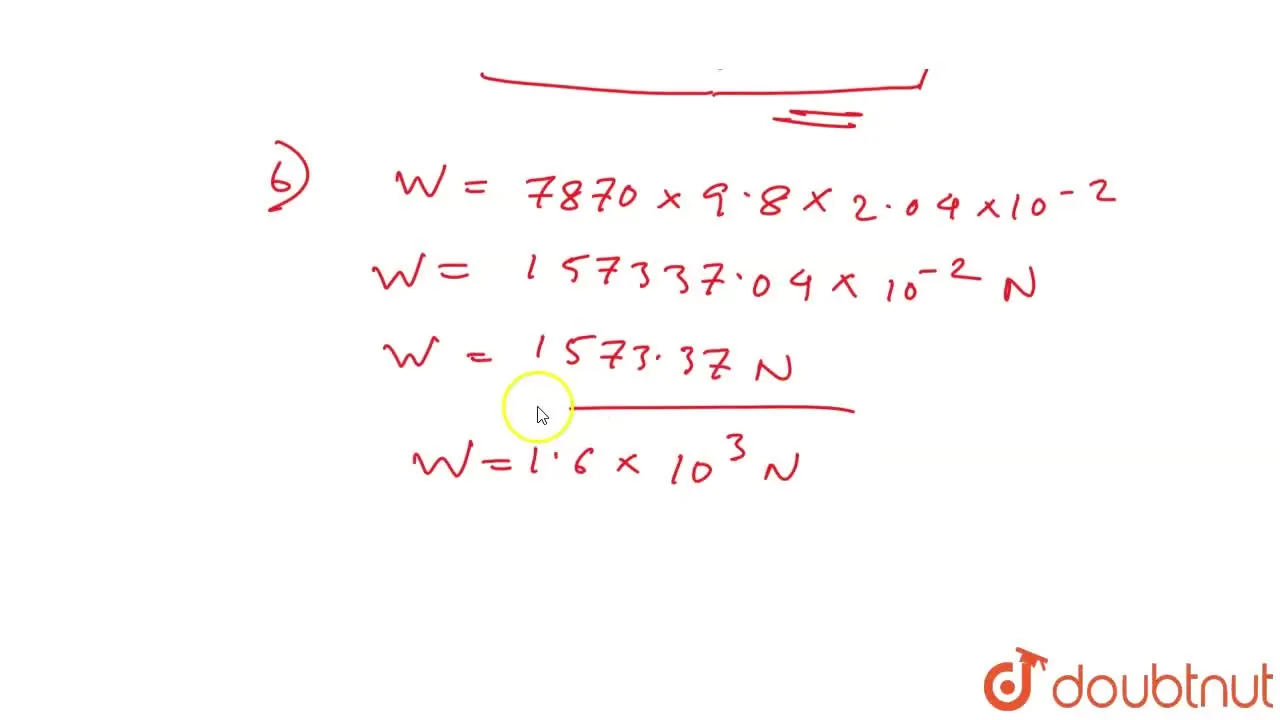 b) W = 7870 × 9.8 × 2.04 × 10⁻²
W = 157337.04 × 10⁻² N
W = 1573.37 N
W = 1.6 × 10³ N
doubtnut